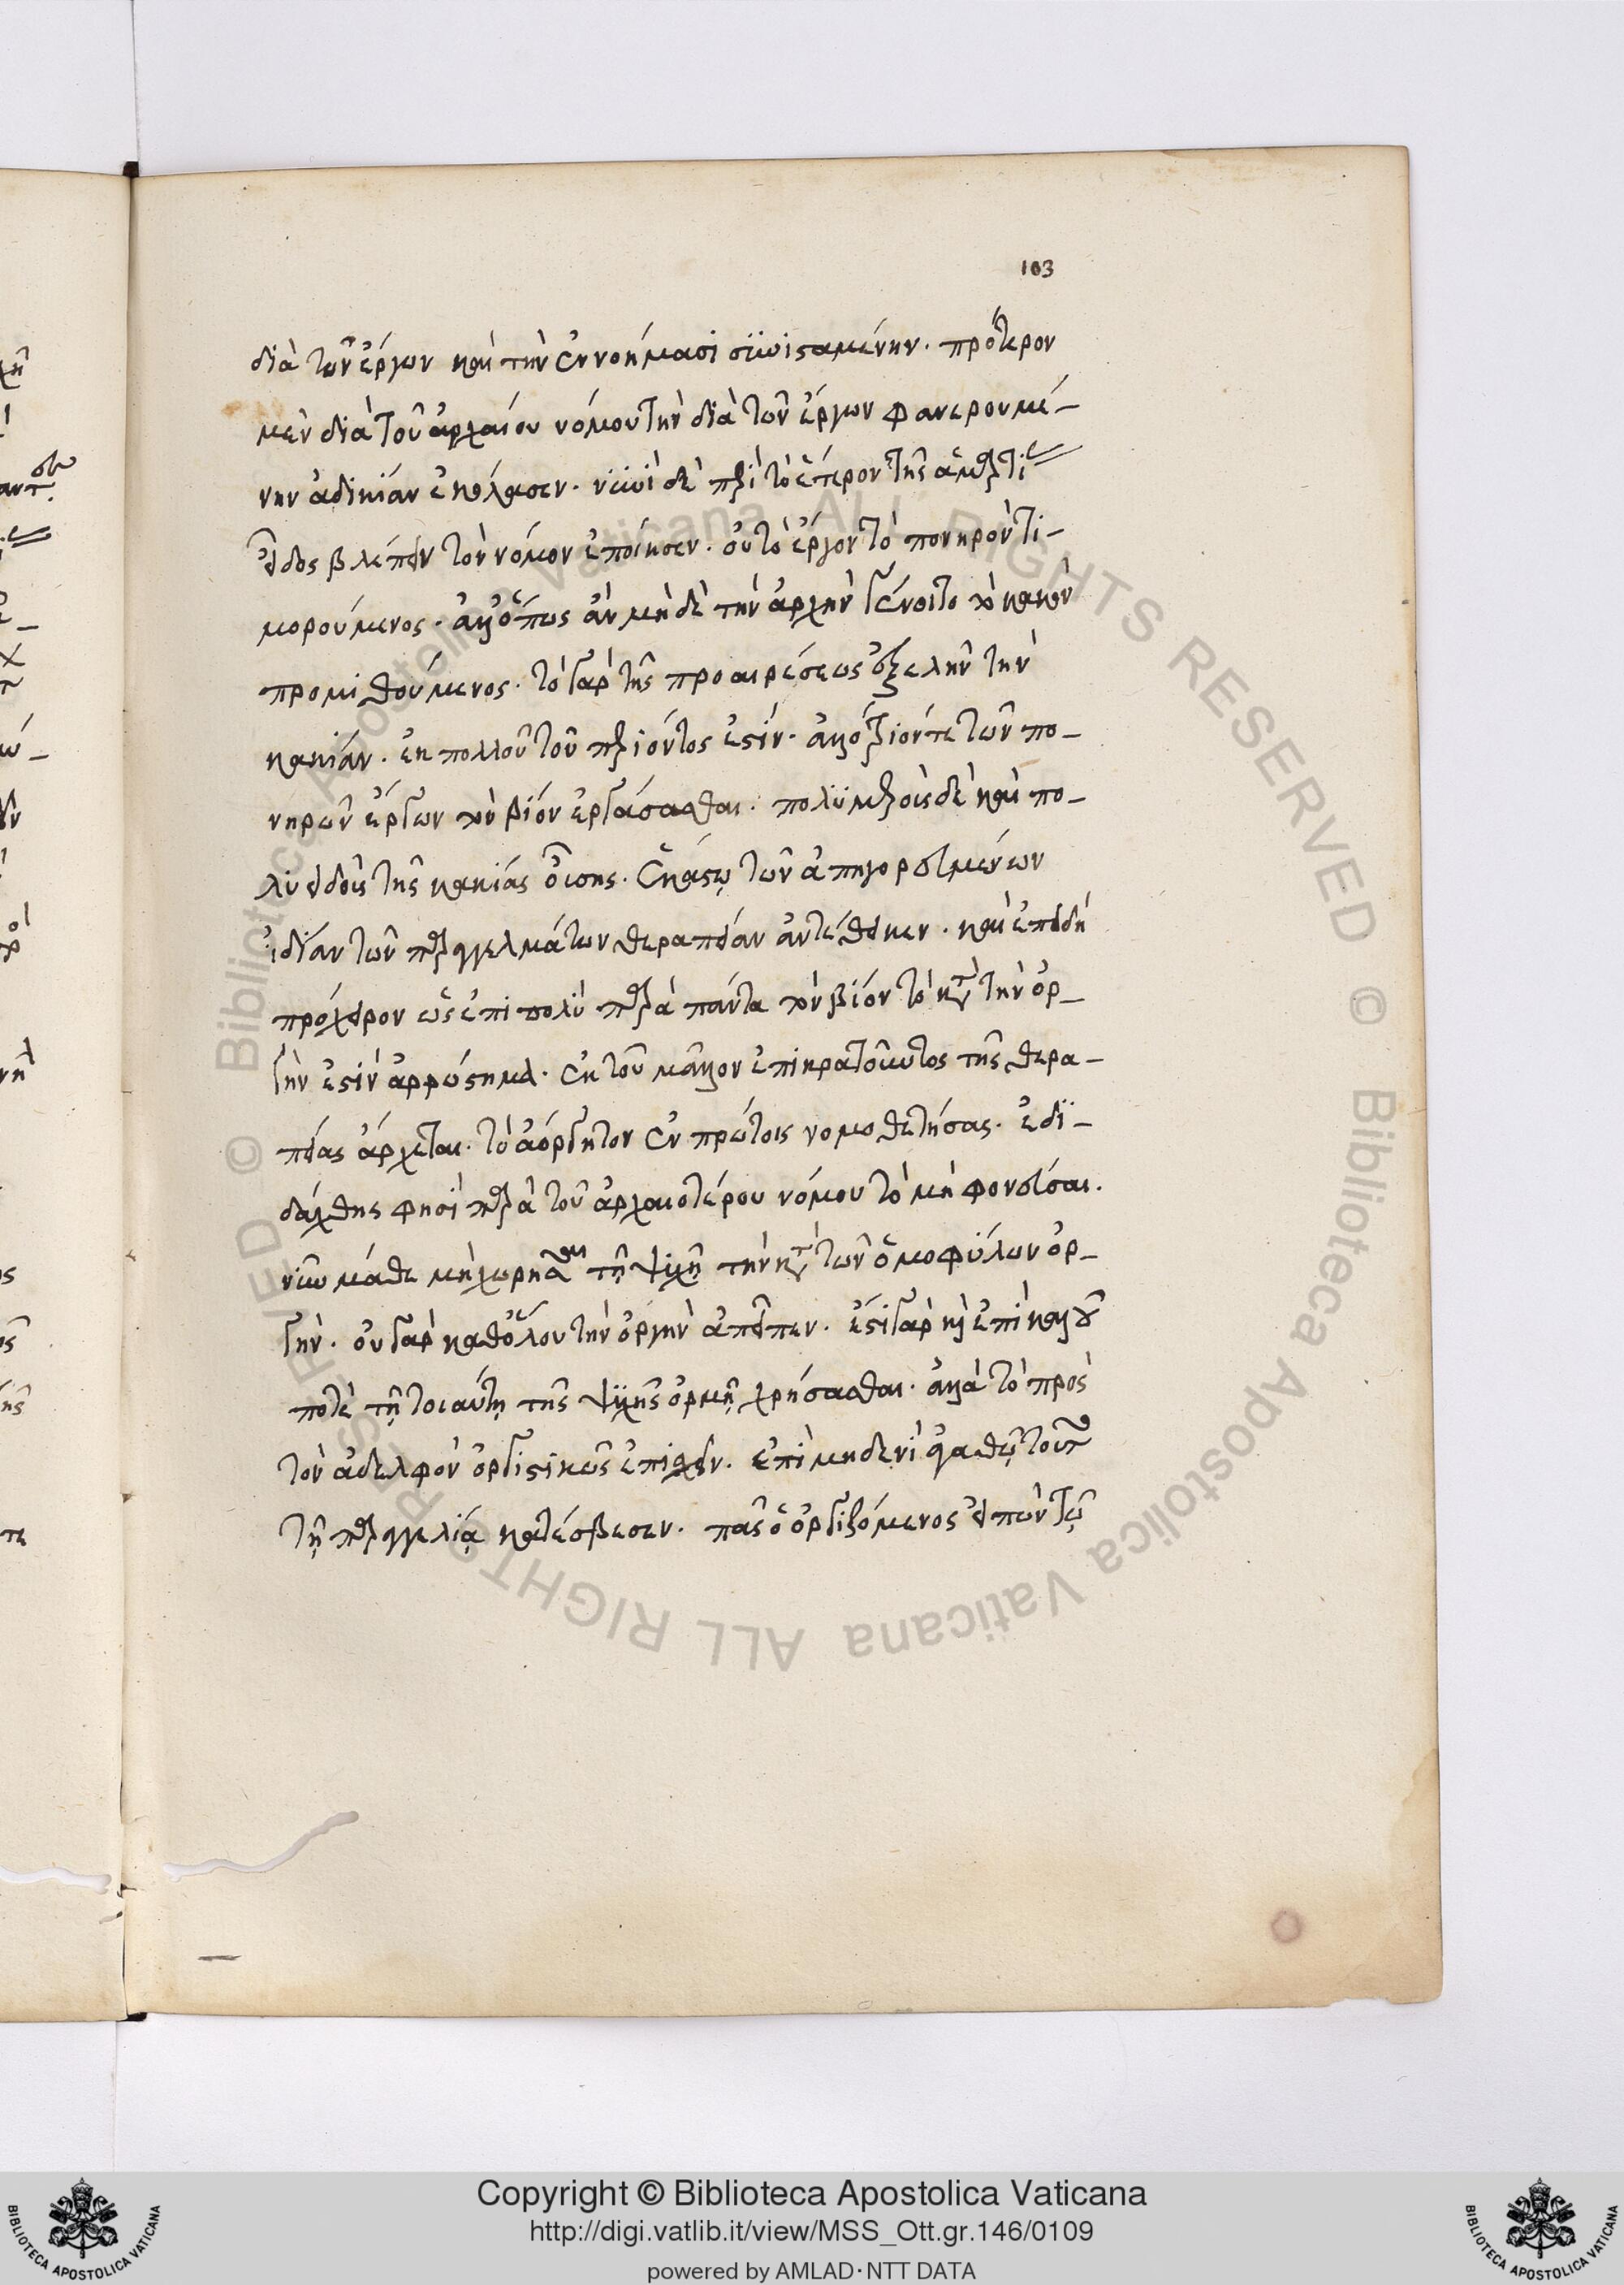 103
διὰ τῶν ἔργων καὶ τὴν ἐν νοήμασι συνισταμένην. πρότερον
μὲν διὰ τοῦ ἀρχαίου νόμου τὴν διὰ τῶν ἔργων φανερουμέ-
νην ἀδικίαν ἐκόλασεν. νυνὶ δὲ περὶ τὸ ἕτερον τῆς ἁμαρτί
εἶδος βλέπειν τὸν νόμον ἐποίησεν. οὐ τὸ ἔργον τὸ πονηρὸν τι-
μορούμενος. ἀλλ' ὅπως ἂν μὴ δὲ τὴν ἀρχὴν γένοιτο τὸ κακὸν
προμιθούμενος. τὸ γὰρ τῆς προαιρέσεως ἐξελῆν τὴν
κακίαν. ἐκ πολλοῦ τοῦ περιόντος ἐστίν. τῶν πο-
νηρῶν ἔργων τὸν βίον ἐργάσασθαι. πολυμεροὺς δὲ καὶ πο-
λυειδοῦς τῆς κακίας οὔσης. ἑκάστῳ τῶν ἀπηγορευμένων
ἰδίαν τῶν παραγγελμάτων θεραπείαν ἀντέθεικεν. καὶ ἐπειδὴ
πρόχειρον ὡς ἐπὶ πολὺ παρὰ πάντα τὸν βίον τὸ κατὰ τὴν ὀρ-
γήν ἐστιν ἀρρώστημα. ἐκ τοῦ μᾶλλον ἐπικρατοῦντος τῆς θερα-
πείας ἄρχεται. τὸ ἀόργητον ἐν πρώτοις νομοθετήσας. ἐδι-
δάχθης φησὶ παρὰ τοῦ ἀρχαιοτέρου νόμου τὸ μὴ φονεῦσαι.
νῦν μάθε μὴ χωρῆσαι τῇ ψυχῇ τὴν κατὰ τῶν ὁμοφύλων ὀρ-
γήν. οὐ γὰρ καθόλου τὴν ὀργὴν ἀπεῖπεν. ἔστι γὰρ καὶ ἐπὶ καλοῦ
ποτὲ τῇ τοιαύτῃ τῆς ψυχῆς ὁρμῇ χρήσασθαι. ἀλλὰ τὸ πρὸς
τὸν ἀδελφὸν ὀργιστικῶς ἐπὶ μηδενὶ ἀγαθῷ τοῦτο
τῇ παραγγελίᾳ κατέσβεσεν. πᾶς ὁ ὀργιζόμενος εἰπὼν τῷ
Copyright © Biblioteca Apostolica Vaticana
http://digi.vatlib.it/view/MSS_Ott.gr.146/0109
powered by AMLAD·NTT DATA
© Biblioteca Apostolica Vaticana ALL RIGHTS RESERVED © Biblioteca Apostolica Vaticana ALL RIGHTS RESERVED
BIBLIOTECA APOSTOLICA VATICANA
BIBLIOTECA APOSTOLICA VATICANA